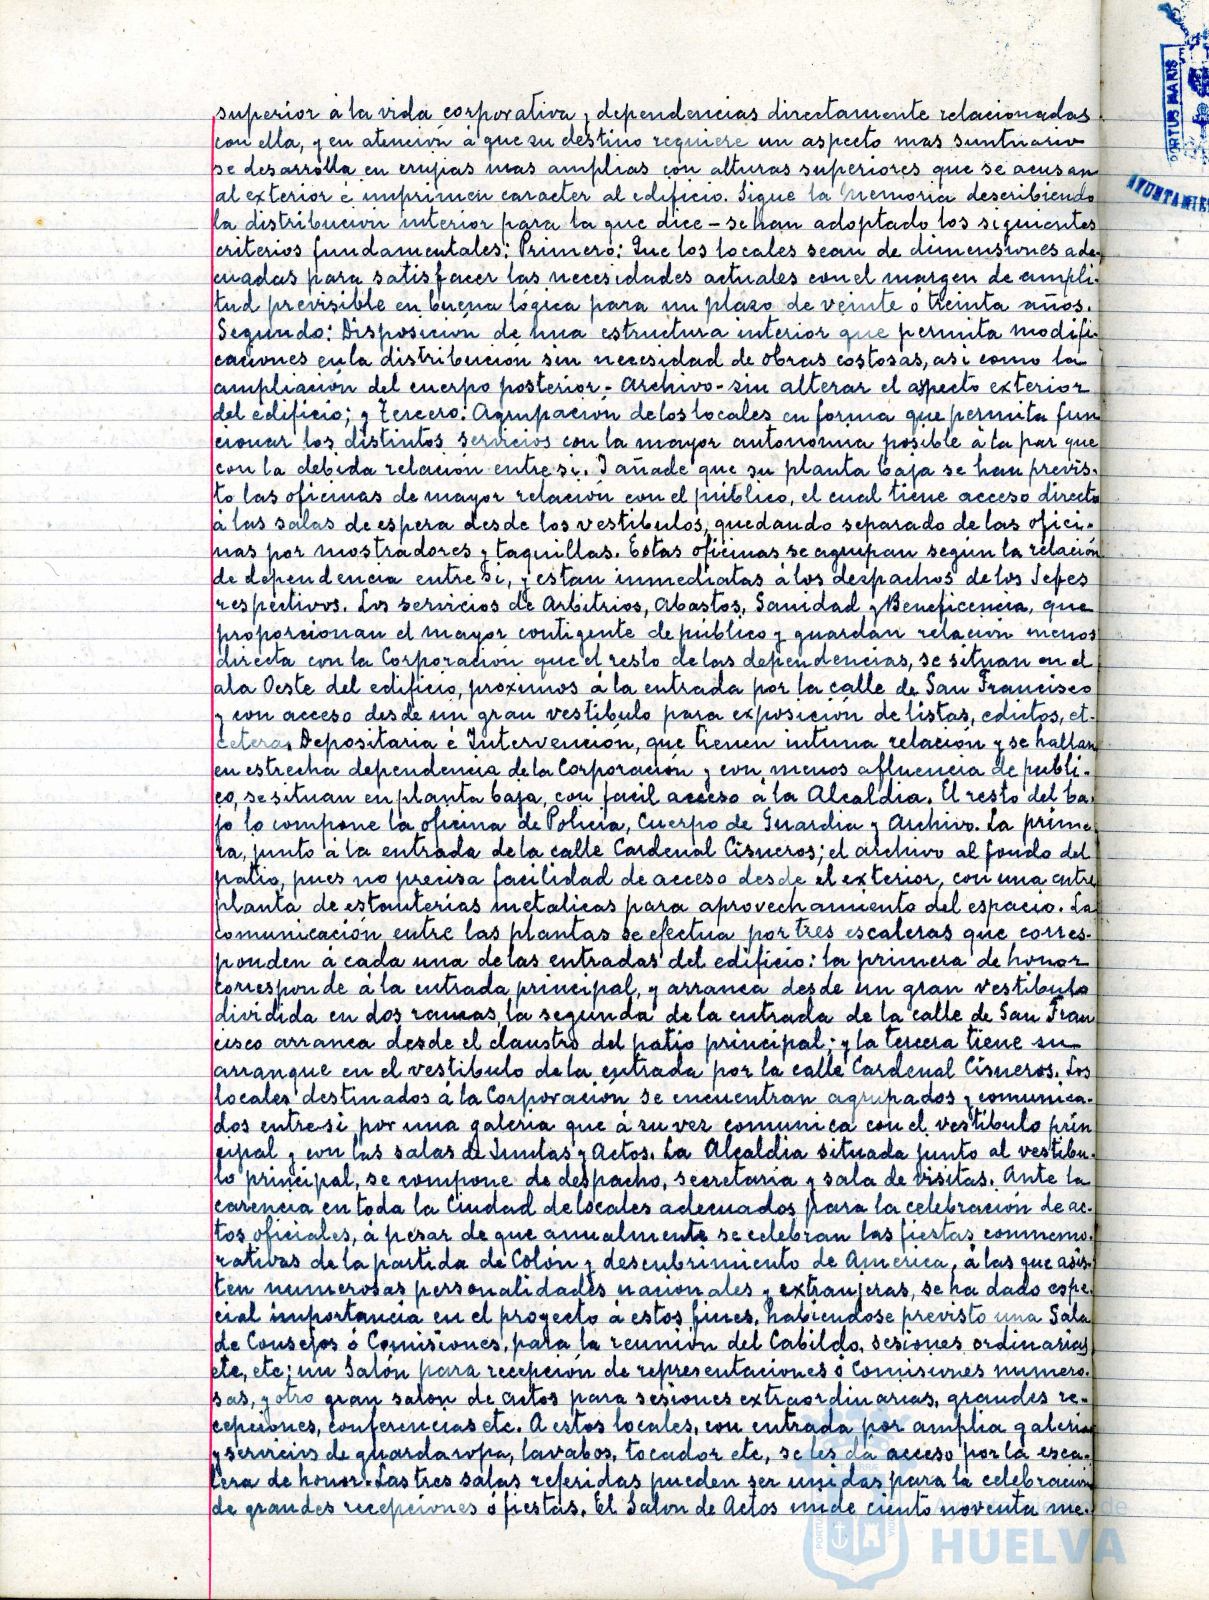 superior à la vida corporativa y dependencias directamente relacionadas
con ella, y en atención à que su destino requiere un aspecto mas suntuario
se desarrolla en crujias mas amplias con alturas superiores que se acusan
al exterior é imprimen caracter al edificio. Sigue la Memoria describiendo
la distribucion interior para la que dice - se han adoptado los siguientes
criterios fundamentales: Primero: Que los locales sean de dimensiones ade-
cuadas para satisfacer las necesidades actuales con el margen de ampli-
tud previsible en buena lógica para un plazo de veinte ó treinta años.
Segundo: Disposición de una estructura interior que permita modifi-
caciones en la distribución sin necesidad de obras costosas, asi como la
ampliación del cuerpo posterior - Archivo - sin alterar el aspecto exterior
del edificio; y Tercero: Agrupación de los locales en forma que permita fun
cionar los distintos servicios con la mayor autonomia posible à la par que
con la debida relación entre si. I añade que su planta baja se han previs-
to las oficinas de mayor relación con el público, el cual tiene acceso directo
à las salas de espera desde los vestibulos, quedando separado de las ofici-
nas por mostradores y taquillas. Estas oficinas se agrupan según la relación
de dependencia entre si, y estan inmediatas à los despachos de los Jefes
respectivos. Los servicios de Arbitrios, Abastos, Sanidad y Beneficencia, que
proporcionan el mayor contigente de público y guardan relación menos
directa con la Corporación que el resto de las dependencias, se situan en el
ala Oeste del edificio, proximos á la entrada por la calle de San Francisco
y con acceso desde un gran vestibulo para exposición de listas, edictos, et-
cetera. Depositaria é Intervención, que tienen intima relación y se hallan
en estrecha dependencia de la Corporación y con menos afluencia de publi-
co, se situan en planta baja, con facil acceso à la Alcaldia. El resto del ba-
jo lo compone la oficina de Policia, Cuerpo de Guardia y Archivo. La prime-
ra, junto à la entrada de la calle Cardenal Cisneros; el archivo al fondo del
patio, pues no precisa facilidad de acceso desde el exterior, con una entre
planta de estanterias metalicas para aprovechamiento del espacio. La
comunicación entre las plantas se efectua por tres escaleras que corres-
ponden á cada una de las entradas del edificio: la primera de honor
corresponde á la entrada principal, y arranca desde un gran vestibulo
dividida en dos ramas, la segunda de la entrada de la calle de San Fran
cisco arranca desde el claustro del patio principal; y la tercera tiene su
arranque en el vestibulo de la entrada por la calle Cardenal Cisneros. Los
locales destinados á la Corporación se encuentran agrupados y comunica-
dos entre si por una galeria que à su vez comunica con el vestibulo prin
cipal y con las salas de Juntas y Actos. La Alcaldia situada junto al vestibu-
lo principal, se compone de despacho, secretaria y sala de visitas. Ante la
carencia en toda la Ciudad de locales adecuados para la celebración de ac-
tos oficiales, à pesar de que anualmente se celebran las fiestas conmemo-
rativas de la partida de Colón y descubrimiento de America, à las que asis-
ten numerosas personalidades nacionales y extranjeras, se ha dado espe-
cial importancia en el proyecto à estos fines, habiendose previsto una Sala
de Consejos ó Comisiones, para la reunión del Cabildo, sesiones ordinarias,
etc, etc; un Salón para recepción de representaciones ó Comisiones numero-
sas, y otro gran salon de actos para sesiones extraordinarias, grandes re-
cepciones, conferencias etc. A estos locales, con entrada por amplia galeria
y servicios de guardaropa, lavabos, tocador etc, se les dá acceso por la esca-
lera de honor. Las tres salas referidas pueden ser unidas para la celebración
de grandes recepciones ó fiestas. El Salon de Actos mide ciento noventa me-
PORTUS MARIS
AYUNTAMIE
Ayuntamiento de
HUELVA